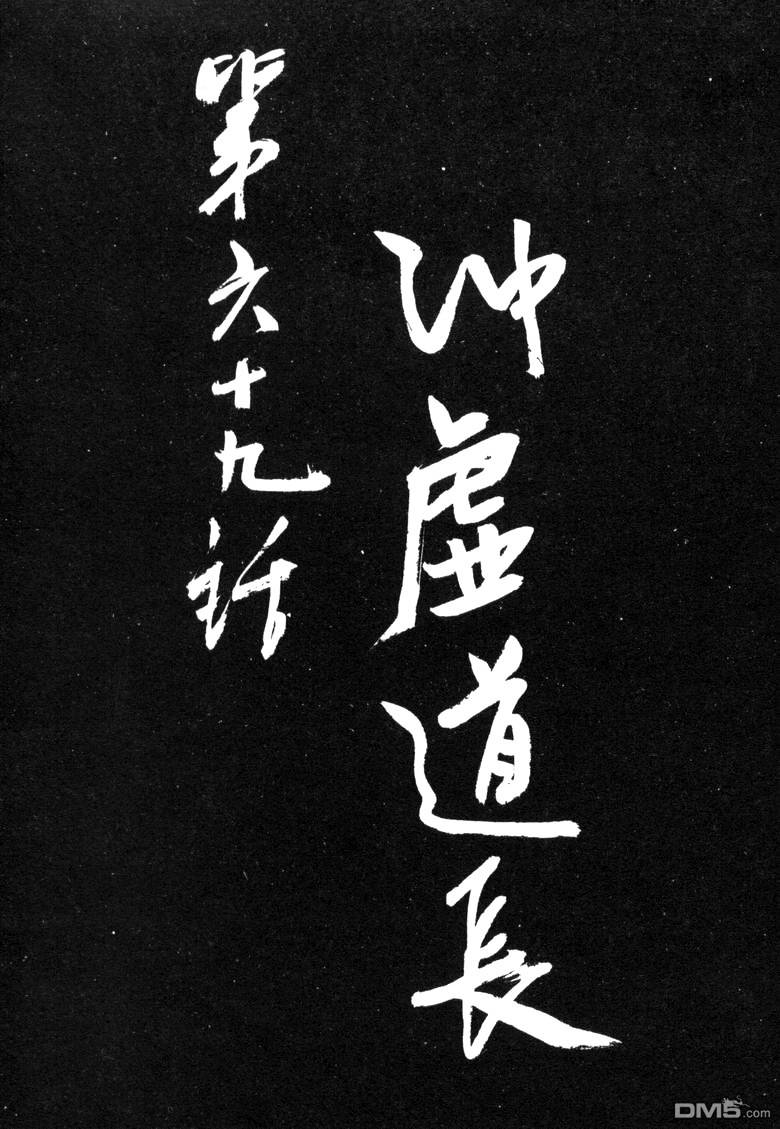 沖虛道長
第六十九話
DM5.com